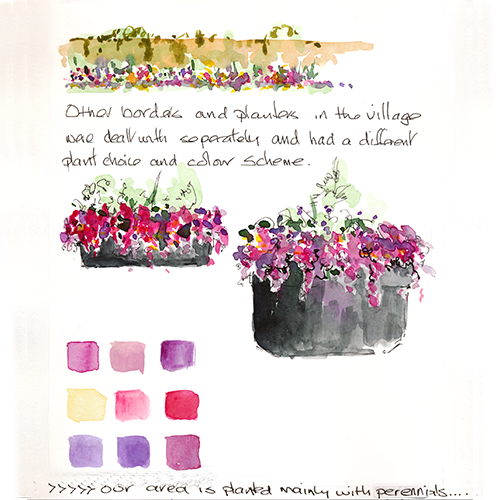 Other borders and planters in the village
were dealt with seperately and had a different
plant choice and colour scheme.
>>>>> our area is planted mainly with perennials....